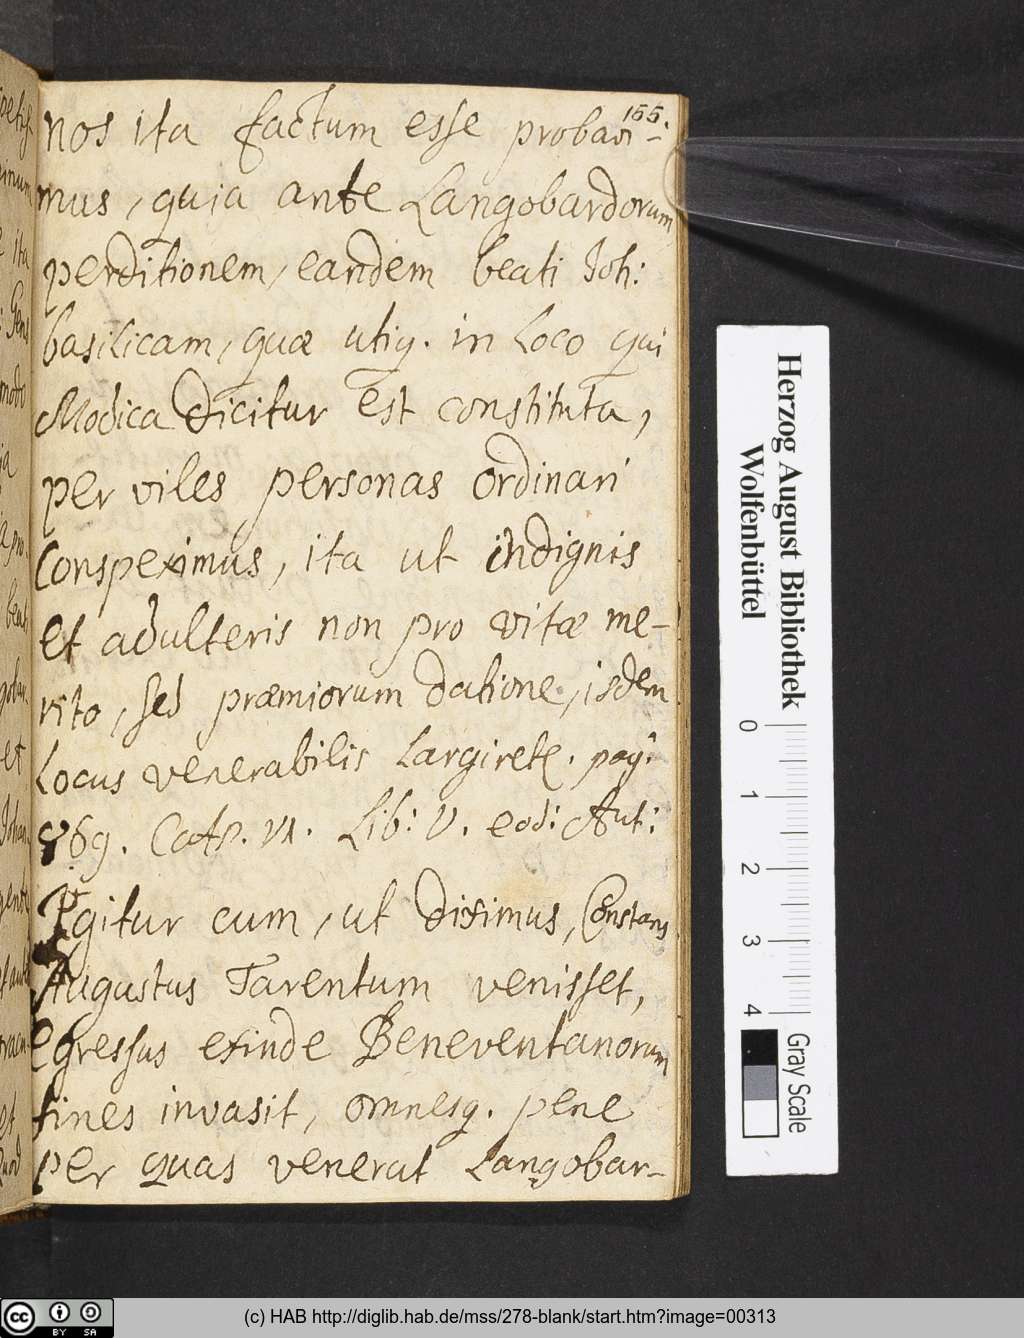 155.
nos ita factum esse probavi-
mus, quia ante Langobardorum
perditionem, eandem beati Joh:
basilicam, quæ utiq. in Loco qui
Modica dicitur est constituta,
per viles personas ordinari
conspeximus, ita ut indignis
et adulteris non pro vitæ me-
rito, sed præmiorum datione, isdem
Locus venerabilis Largiret. pag:
869. Cap. VI. Lib: V. eod: Aut:
Igitur cum, ut diximus, Constans
Augustus Tarentum venisset,
egressus exinde Beneventanorum
fines invasit, omnesq. pene
per quas venerat Langobar-
Herzog August Bibliothek
Wolfenbüttel
0 1 2 3 4
Gray Scale
cc BY SA
(c) HAB http://diglib.hab.de/mss/278-blank/start.htm?image=00313